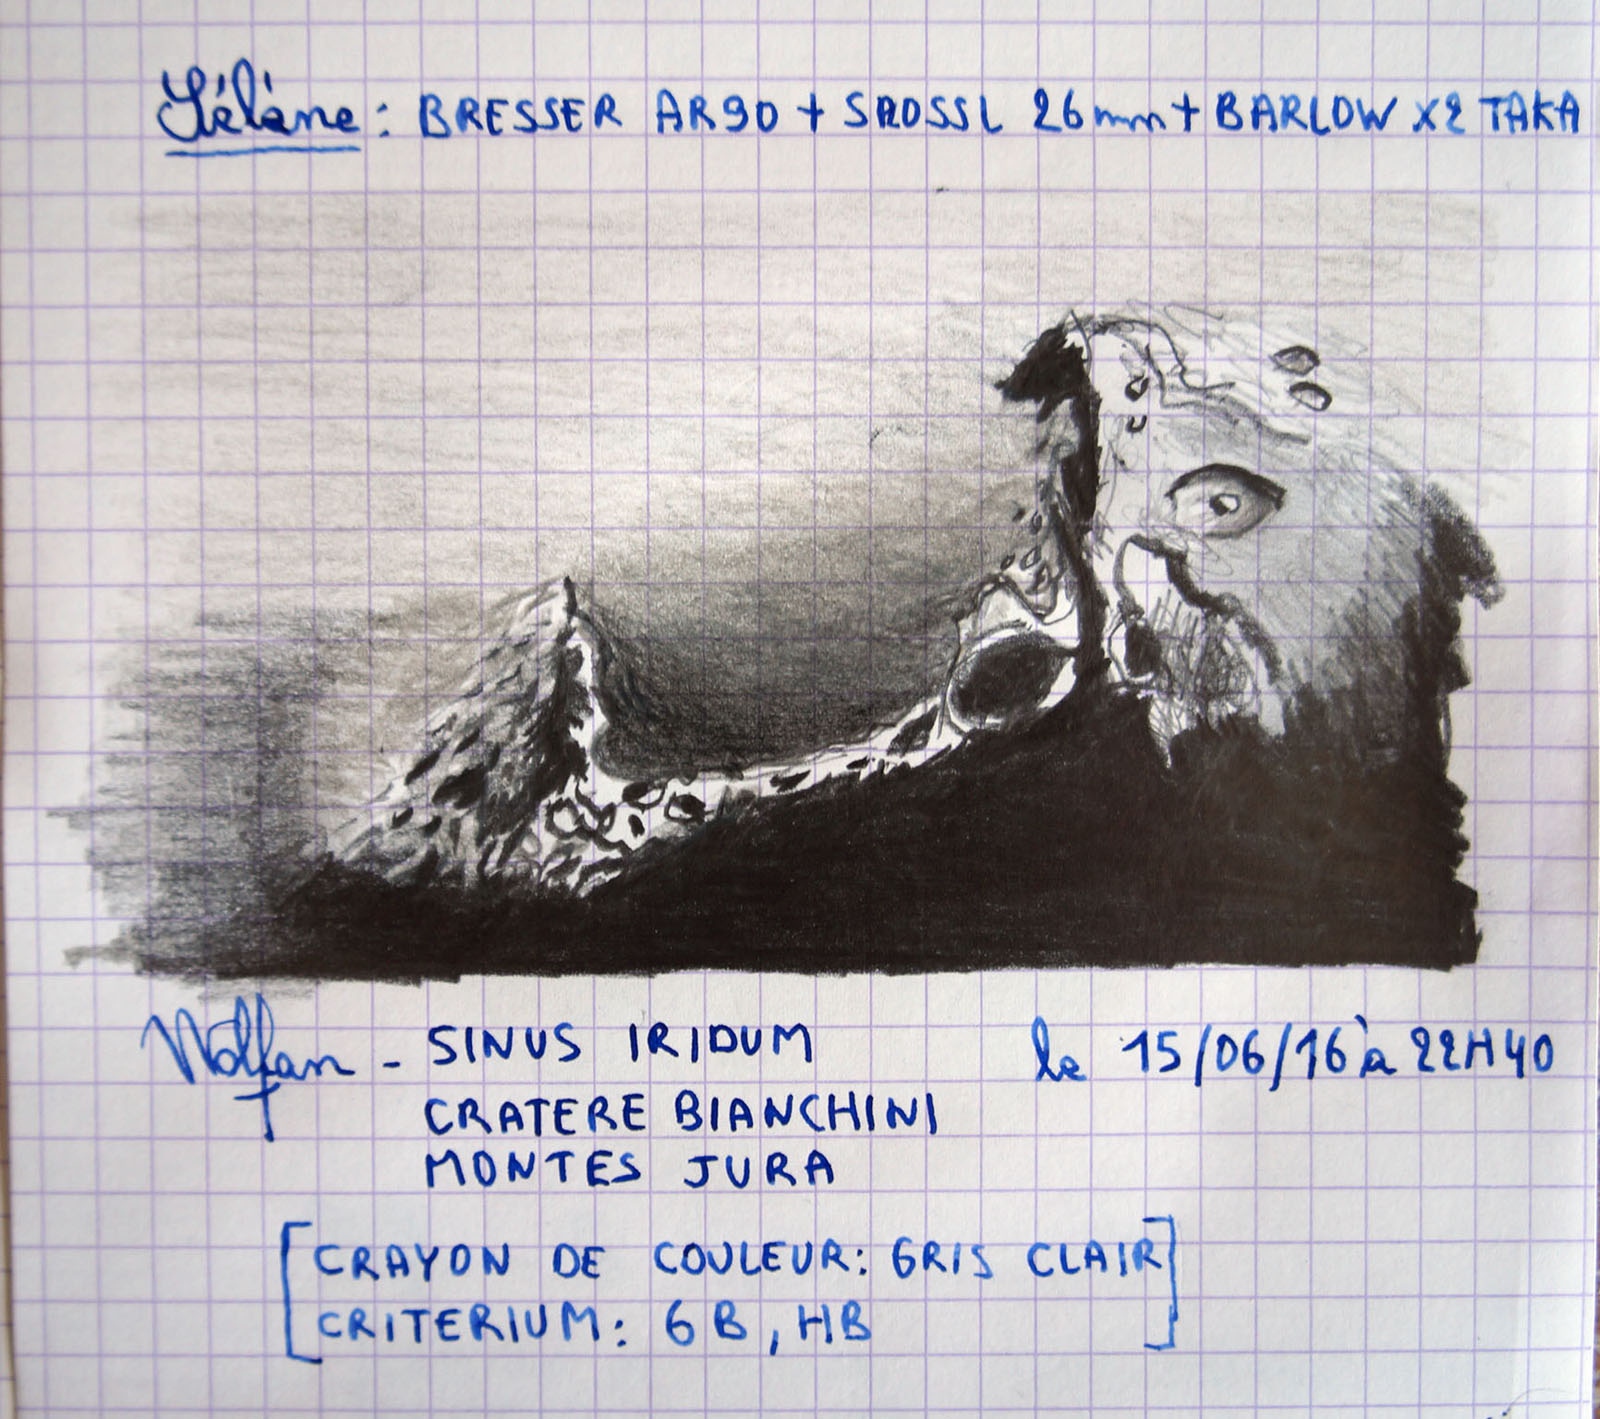 Sélène : BRESSER AR90 + SPLOSSL 26mm + BARLOW X2 TAKA
- SINUS IRIDUM
le 15/06/16 à 22H40
CRATERE BIANCHINI
MONTES JURA
[CRAYON DE COULEUR: GRIS CLAIR
CRITERIUM: 6B, HB]